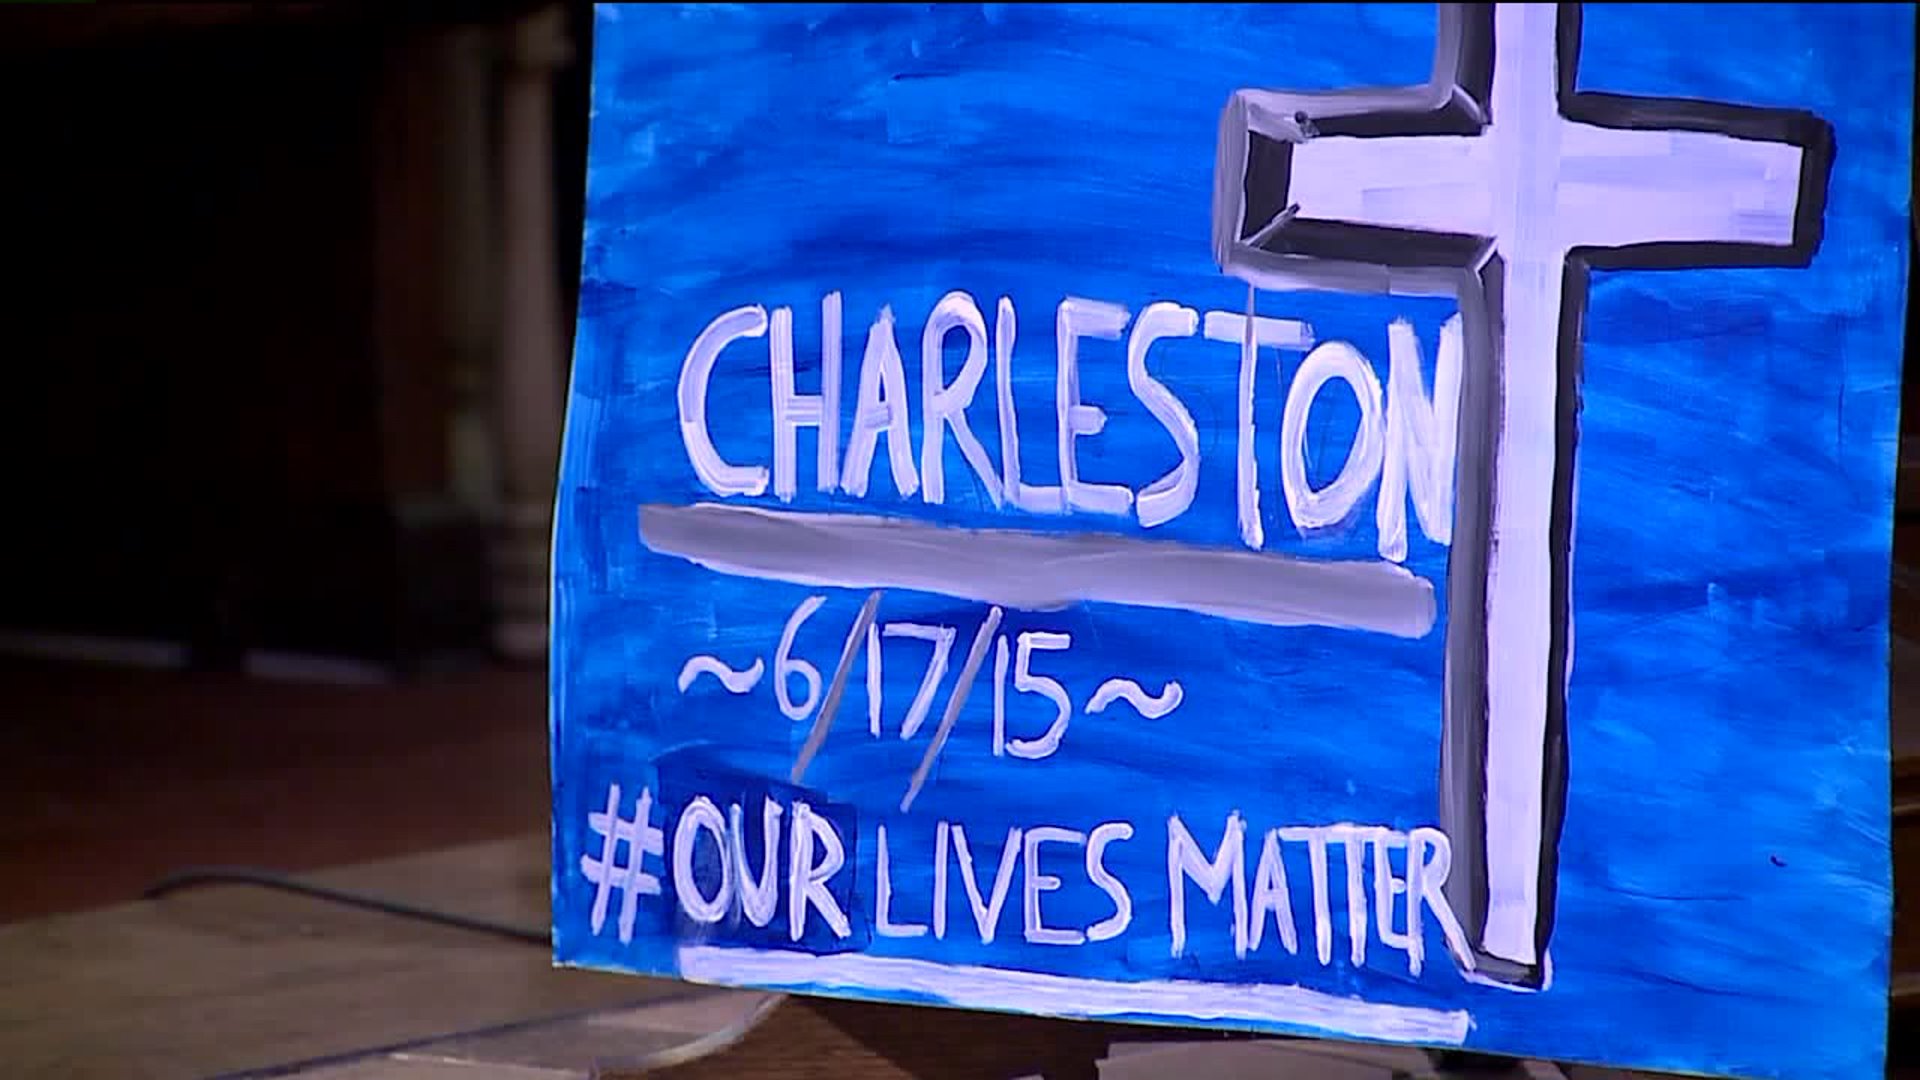 CHARLESTON
~6/17/15~
#OUR LIVES MATTER